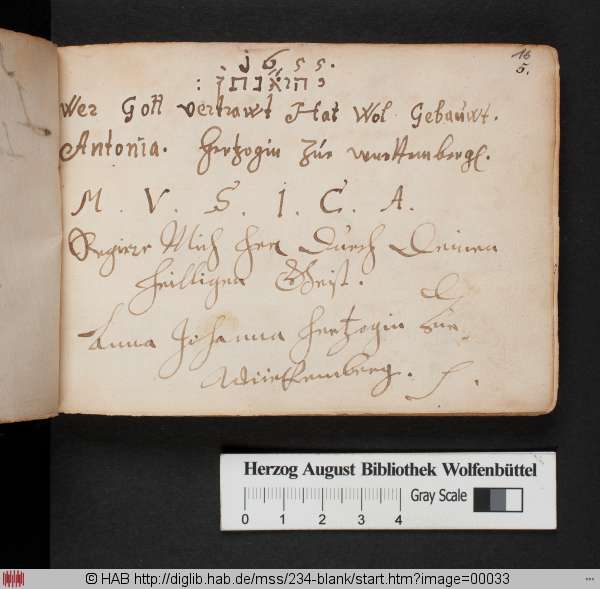 1655.
16
5.
Wer Gott vertrawt Hat Wol Gebauwt.
Antonia. Hertzogin Zue wurttemberg.
M. V. S. I. C. A.
Regirre Mich Herr Durch Deinen
Heilligen Gheist.
Anna Johanna Hertzogin Zue
Wüerttemberg.
Herzog August Bibliothek Wolfenbüttel
0 1 2 3 4 Gray Scale
© HAB http://diglib.hab.de/mss/234-blank/start.htm?image=00033